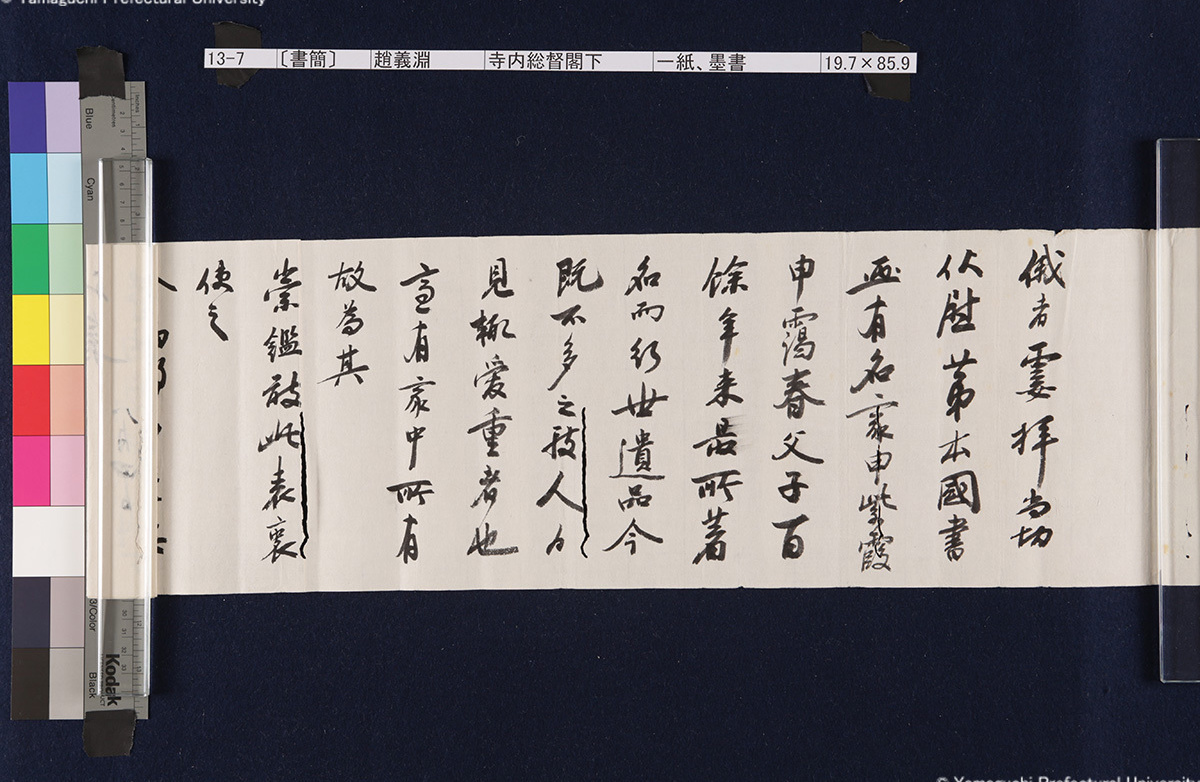 © Yamaguchi Prefectural University
13-7 〔書簡〕 趙義淵 寺内総督閣下 一紙、墨書 19.7×85.9
俄者霎拝尚切
伏慰第本國書
画有名家申紫霞
申靄春父子百
餘年来最所著
名而行世遺品今
既不多之
見輒愛重者也
有家中所有
故為其
崇鑑玆此表衷
使之
Blue
Cyan
3/Color
Black
Kodak
© Yamaguchi Prefectural University